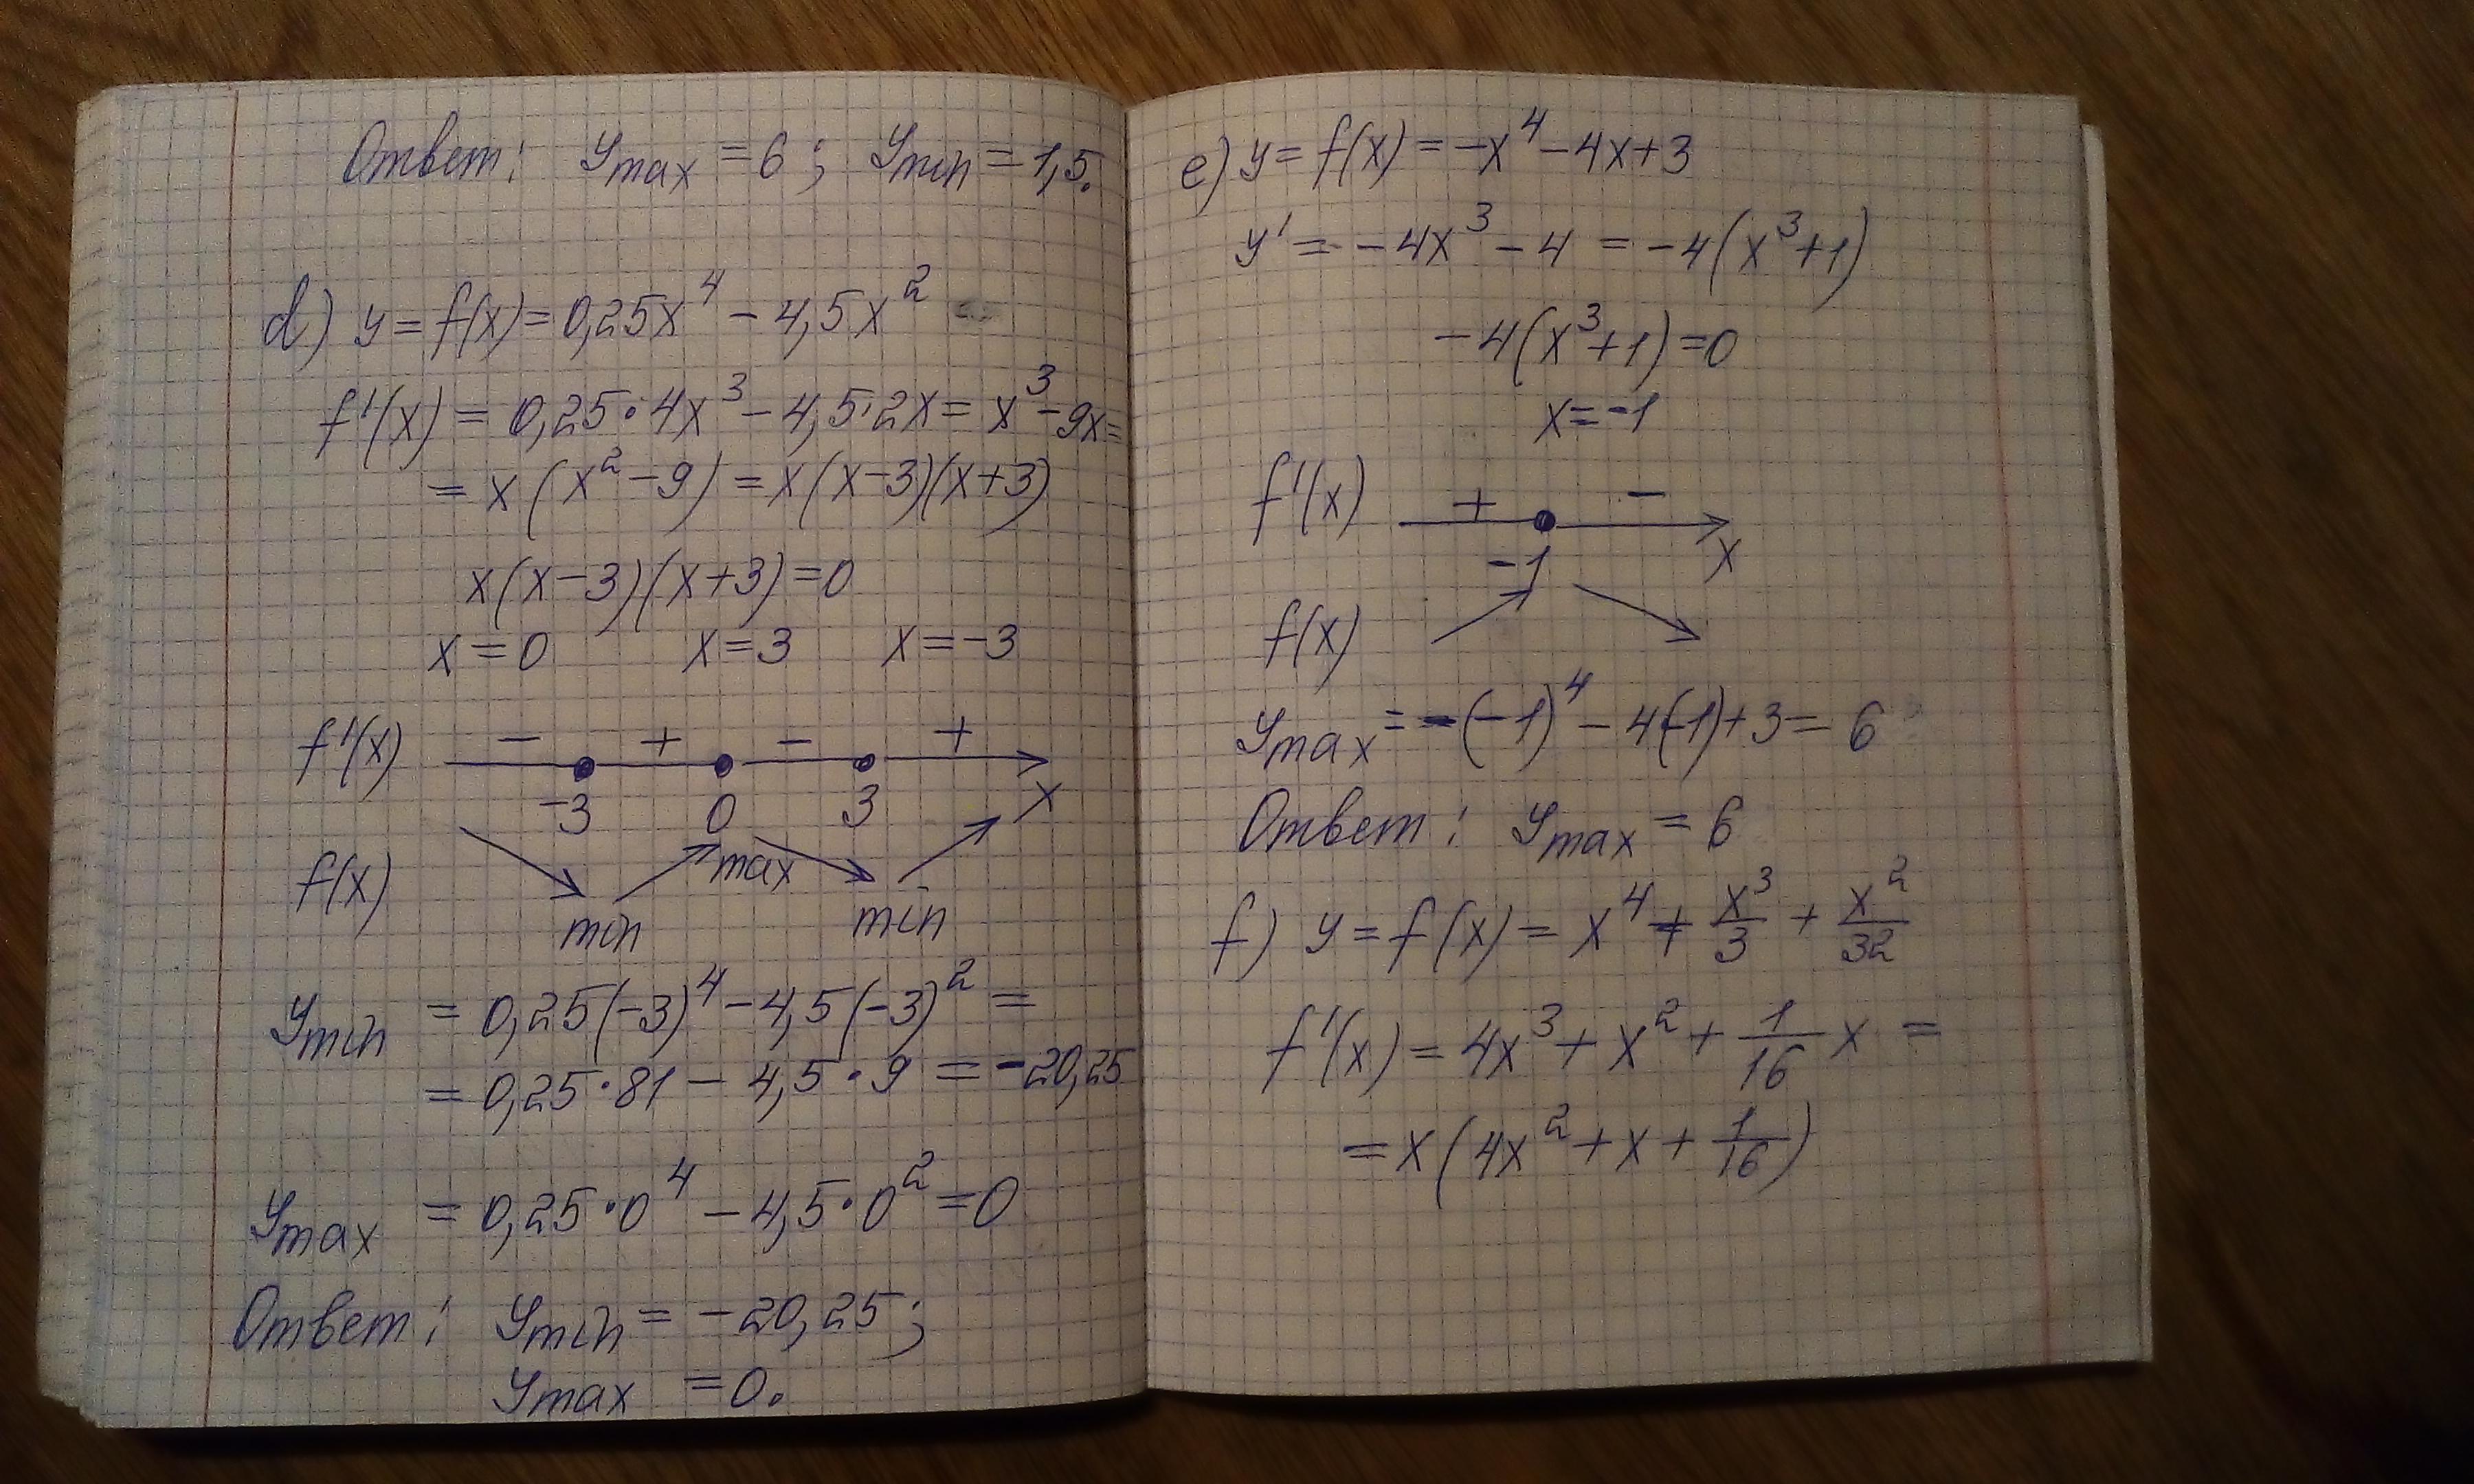 Ответ: y_max = 6; y_min = 1,5.
d) y = f(x) = 0,25x⁴ - 4,5x²
f'(x) = 0,25·4x³ - 4,5·2x = x³ - 9x =
= x(x² - 9) = x(x-3)(x+3)
x(x-3)(x+3)=0
x = 0 x = 3 x = -3
f'(x) - + - +
-3 0 3 x
f(x) min max min
y_min = 0,25(-3)⁴ - 4,5(-3)² =
= 0,25·81 - 4,5·9 = -20,25
y_max = 0,25·0⁴ - 4,5·0² = 0
Ответ: y_min = -20,25;
y_max = 0.
e) y = f(x) = -x⁴ - 4x + 3
y' = -4x³ - 4 = -4(x³+1)
-4(x³+1)=0
x = -1
f'(x) + -
-1 x
f(x)
y_max = -(-1)⁴ - 4(-1) + 3 = 6
Ответ: y_max = 6
f) y = f(x) = x⁴ + x³/3 + x²/32
f'(x) = 4x³ + x² + 1/16 x =
= x(4x² + x + 1/16)